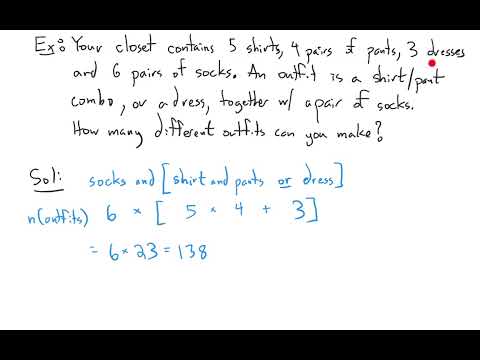 Ex: Your closet contains 5 shirts, 4 pairs of pants, 3 dresses
and 6 pairs of socks. An outfit is a shirt/pant
combo, or a dress, together w/ a pair of socks.
How many different outfits can you make?
Sol: socks and [shirt and pants or dress]
n(outfits) 6 × [ 5 × 4 + 3 ]
= 6 × 23 = 138